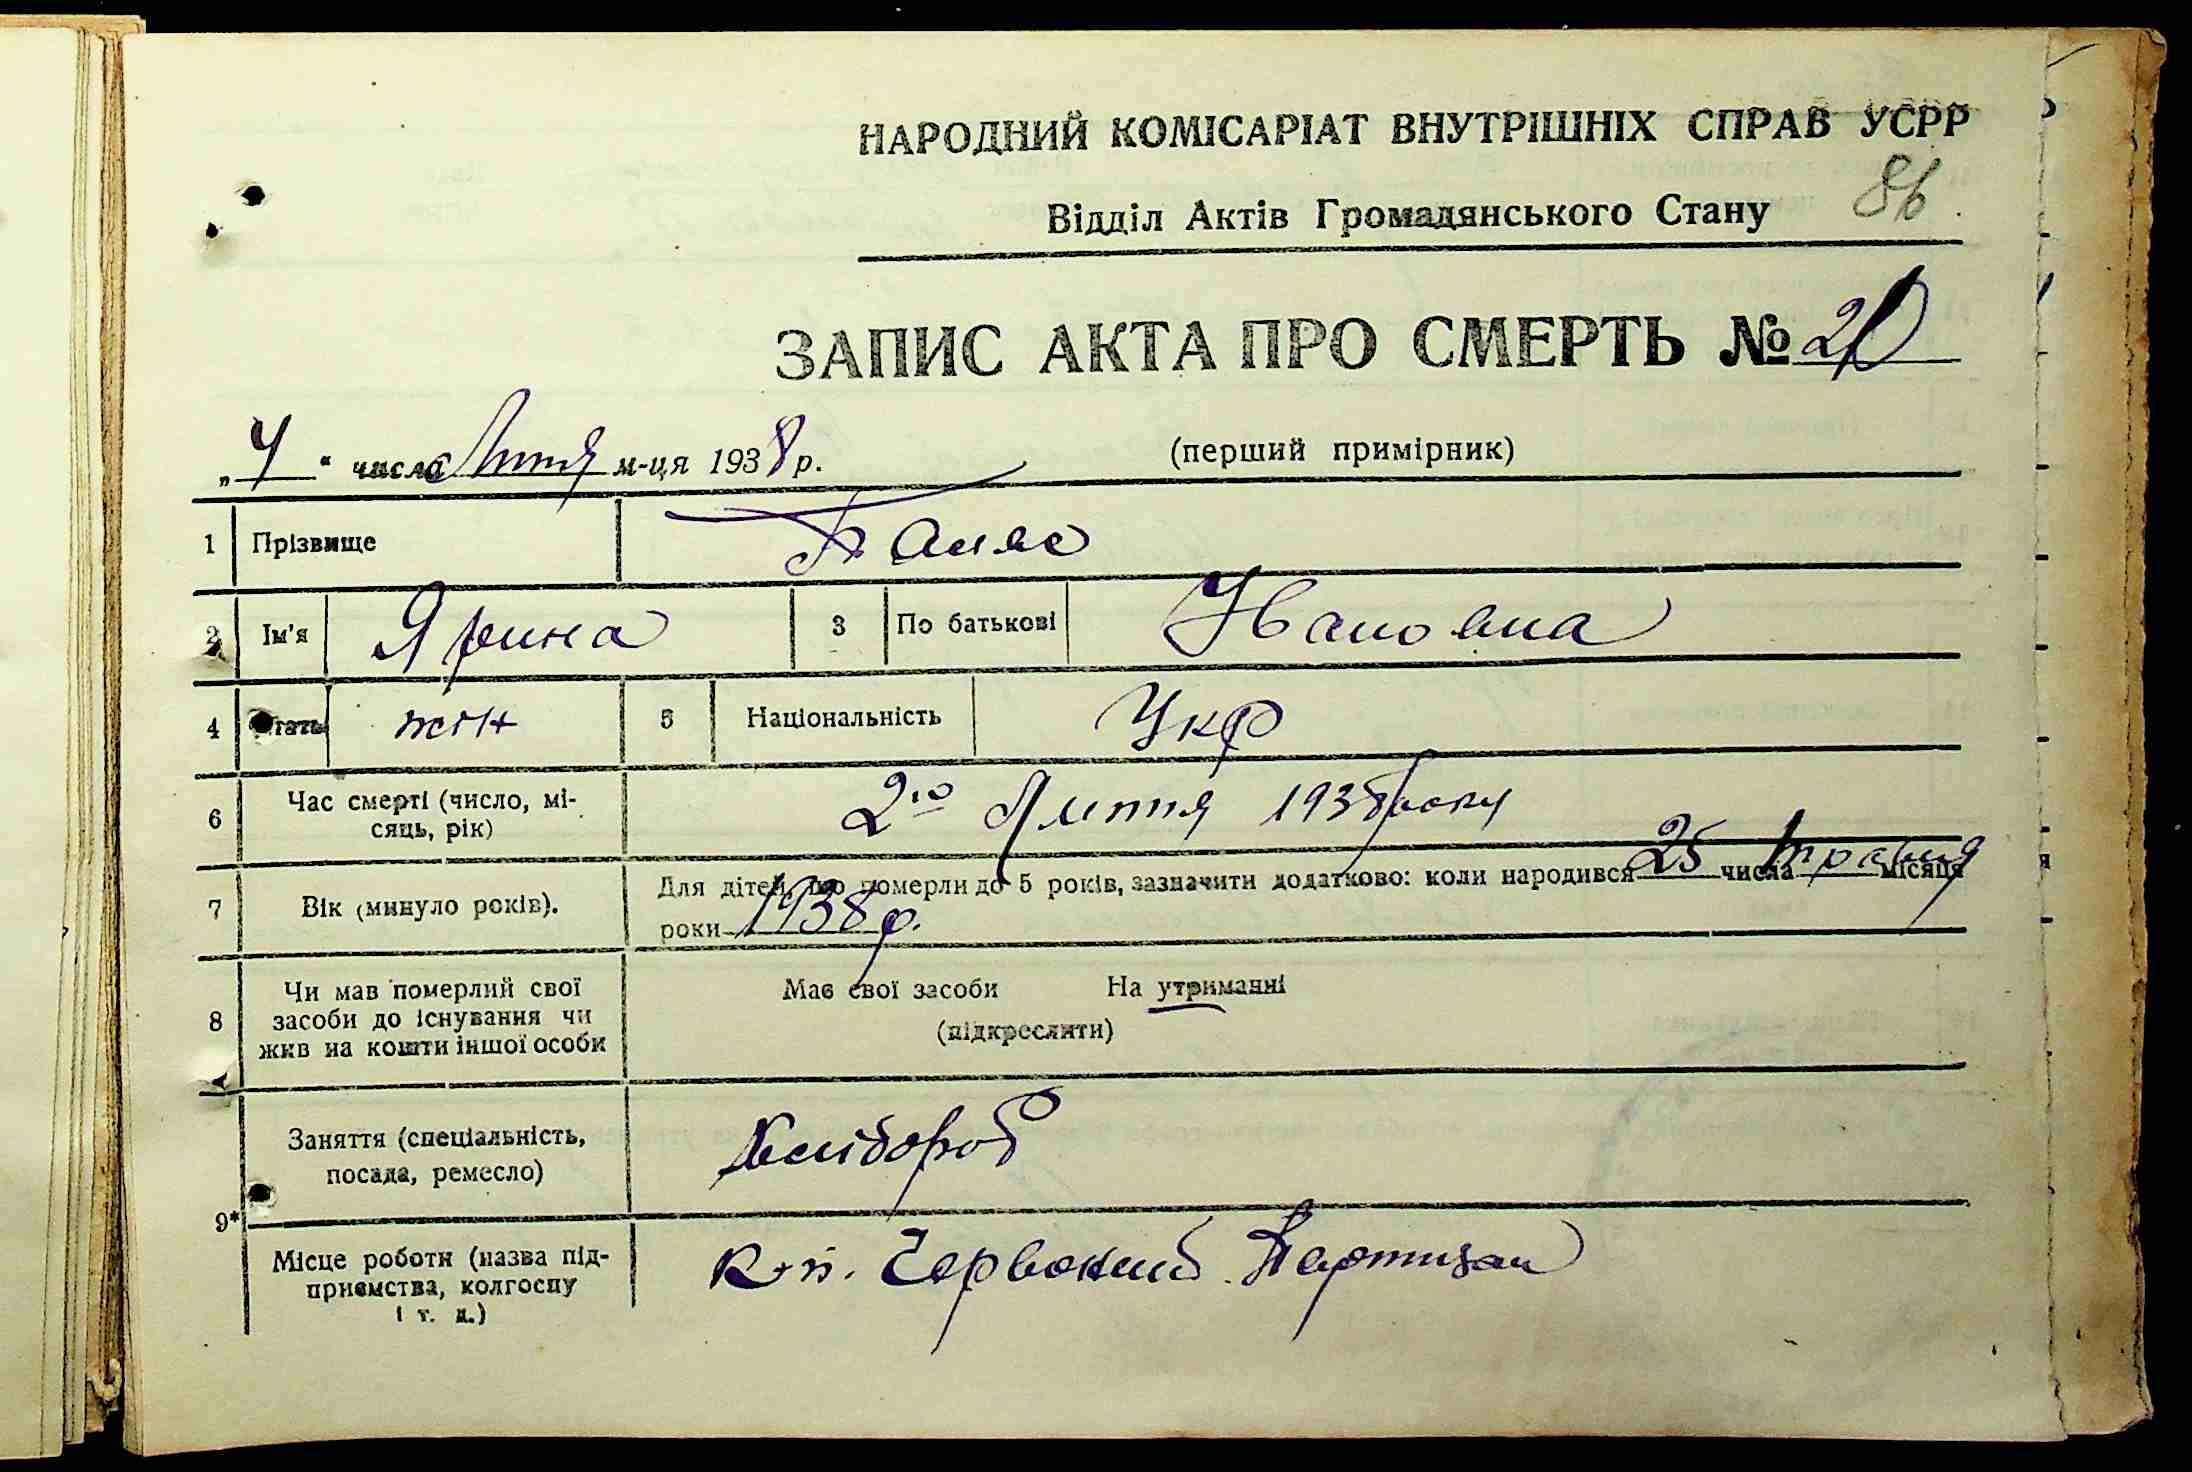 НАРОДНИЙ КОМІСАРІАТ ВНУТРІШНІХ СПРАВ УСРР
86
Відділ Актів Громадянського Стану
ЗАПИС АКТА ПРО СМЕРТЬ № 20
„4“ числа Липня м-ця 1938 р. (перший примірник)
1 Прізвище
2 Ім'я Ярина 3 По батькові Івановна
4 Стать жін 5 Національність Укр
6 Час смерті (число, мі-
сяць, рік) 2го Липня 1938 року
7 Вік (минуло років). Для дітей, що померли до 5 років, зазначити додатково: коли народився 25 числа травня місяця
роки 1938 р.
8 Чи мав померлий свої
засоби до існування чи
жив на кошти іншої особи
Має свої засоби На утриманні
(підкреслити)
9*
Заняття (спеціальність,
посада, ремесло) Хлібороб
Місце роботи (назва під-
приємства, колгоспу
і т. д.)
Червоний Партизан